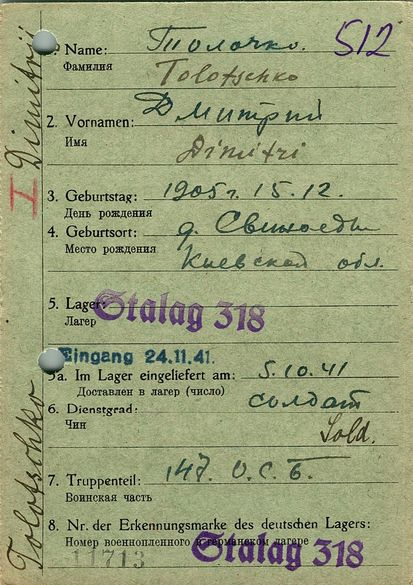 1. Name: Толочко.
512
Фамилия Tolotschko
2. Vornamen: Дмитрий
Имя Dimitri
3. Geburtstag: 1905 г. 15.12.
День рождения
4. Geburtsort: д. Свиноеды
Место рождения Киевской обл.
5. Lager: Stalag 318
Лагер
Eingang 24.11.41.
5a. Im Lager eingeliefert am: 5.10.41
Доставлен в лагер (число)
6. Dienstgrad: солдат
Чин Sold.
7. Truppenteil: 147. О.С.Б.
Воинская часть
8. Nr. der Erkennungsmarke des deutschen Lagers:
Номер военнопленного в германском лагере
11713 Stalag 318
Tolotschko I Dimitrij